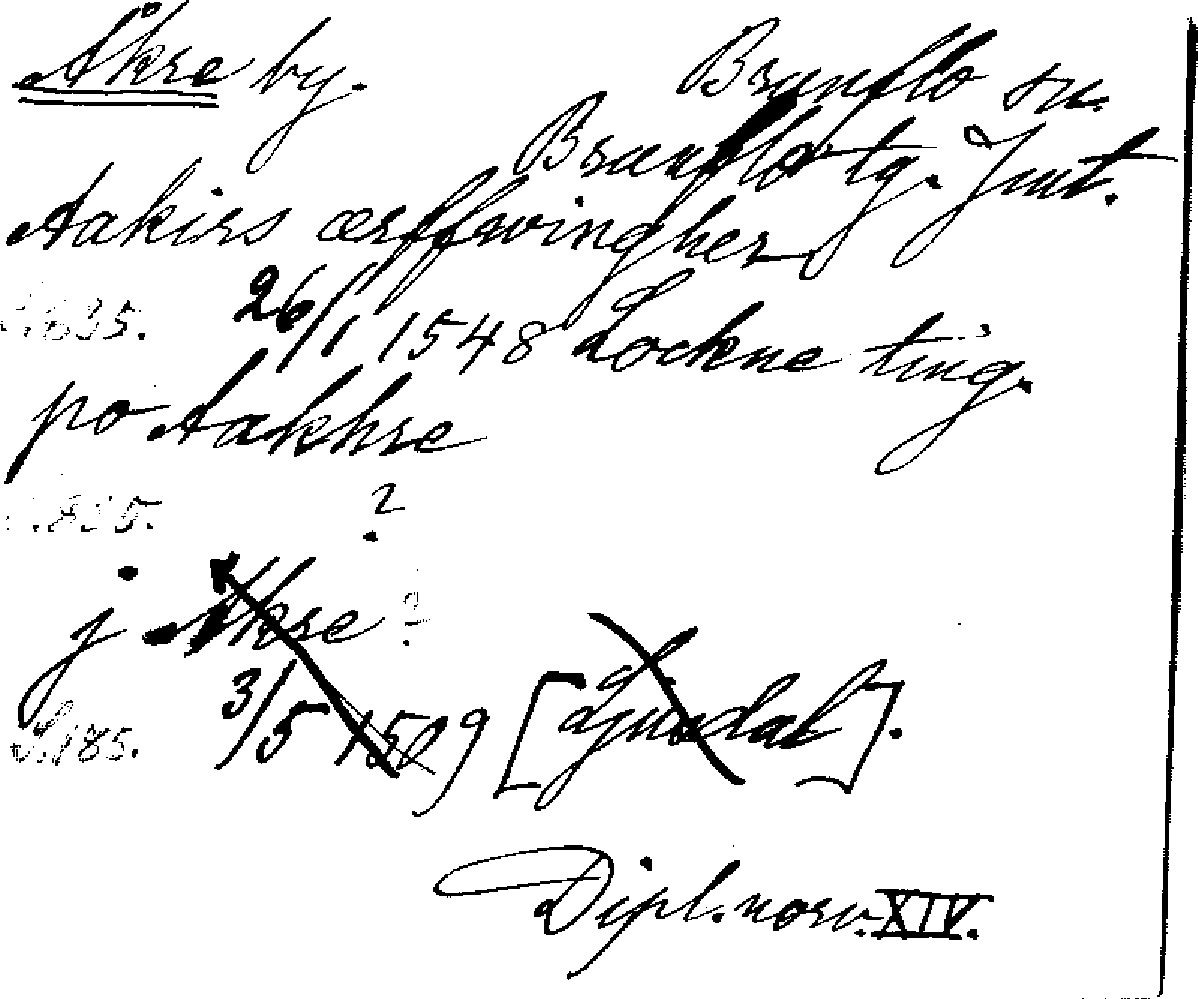 Åkre by. Brunflo sn.
Brunflo tg. Jmt.
Aakirs ærffwingher
S. 835. 26/1 1548 Lockne ting.
po Aakhre
S. 835. ?
j Åkre ?
S. 185. 3/5 1509 [Ljusdal].
Dipl. norv. XIV.